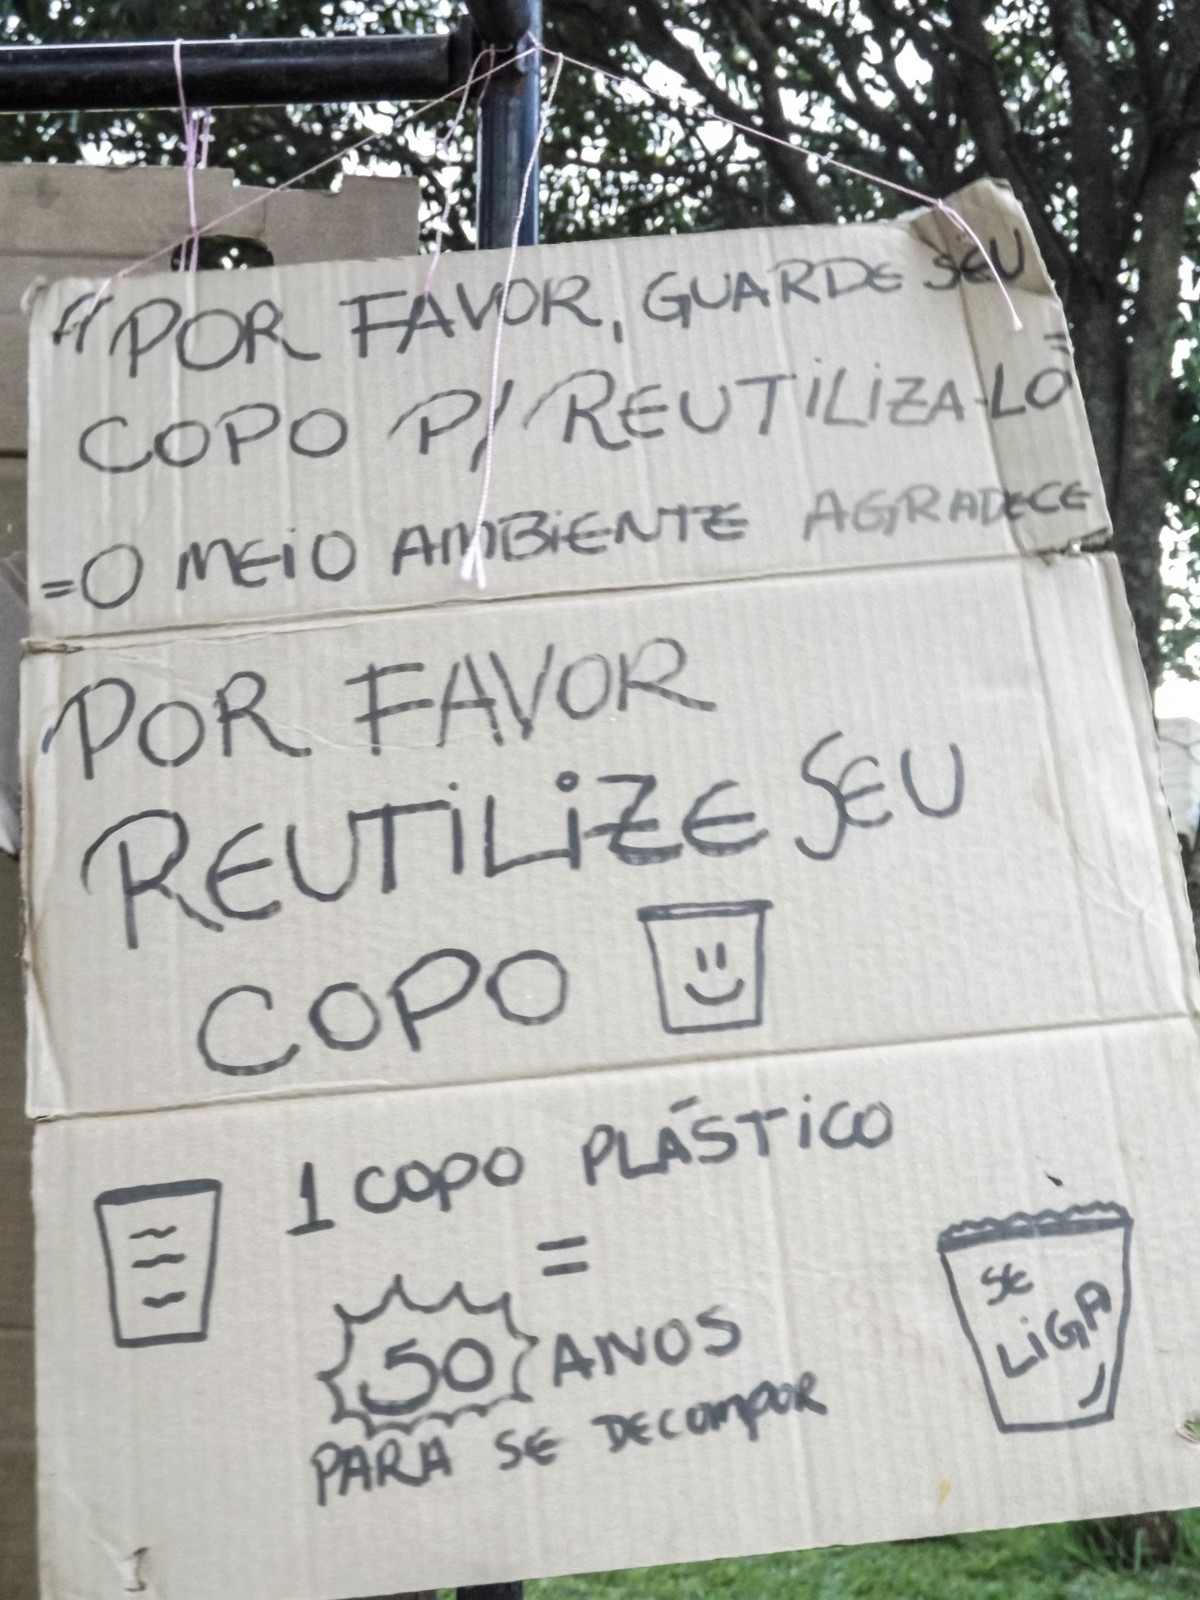 "POR FAVOR, GUARDE SEU
COPO P/ REUTILIZA-LO =
=O MEIO AMBIENTE AGRADECE
POR FAVOR
REUTILIZE SEU
COPO
1 COPO PLÁSTICO
=
50 ANOS
PARA SE DECOMPOR
SE
LIGA